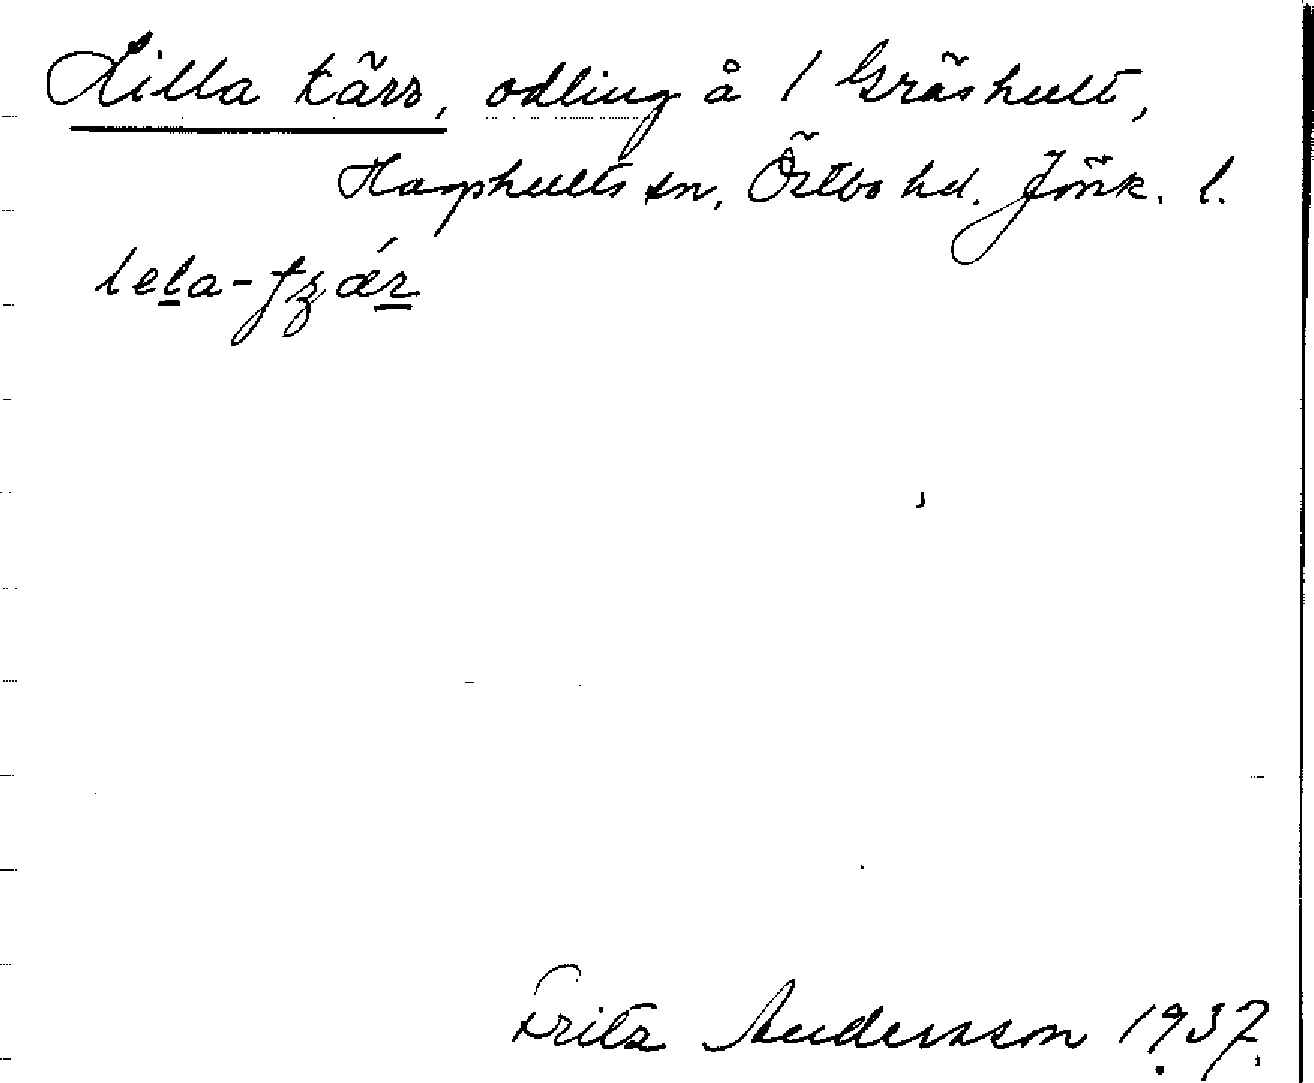 Lilla kärr, odling å 1 Gräshult,
Hagshults sn, Östbo hd. Jönk. l.
lela-
Fritz Andersson 1937.